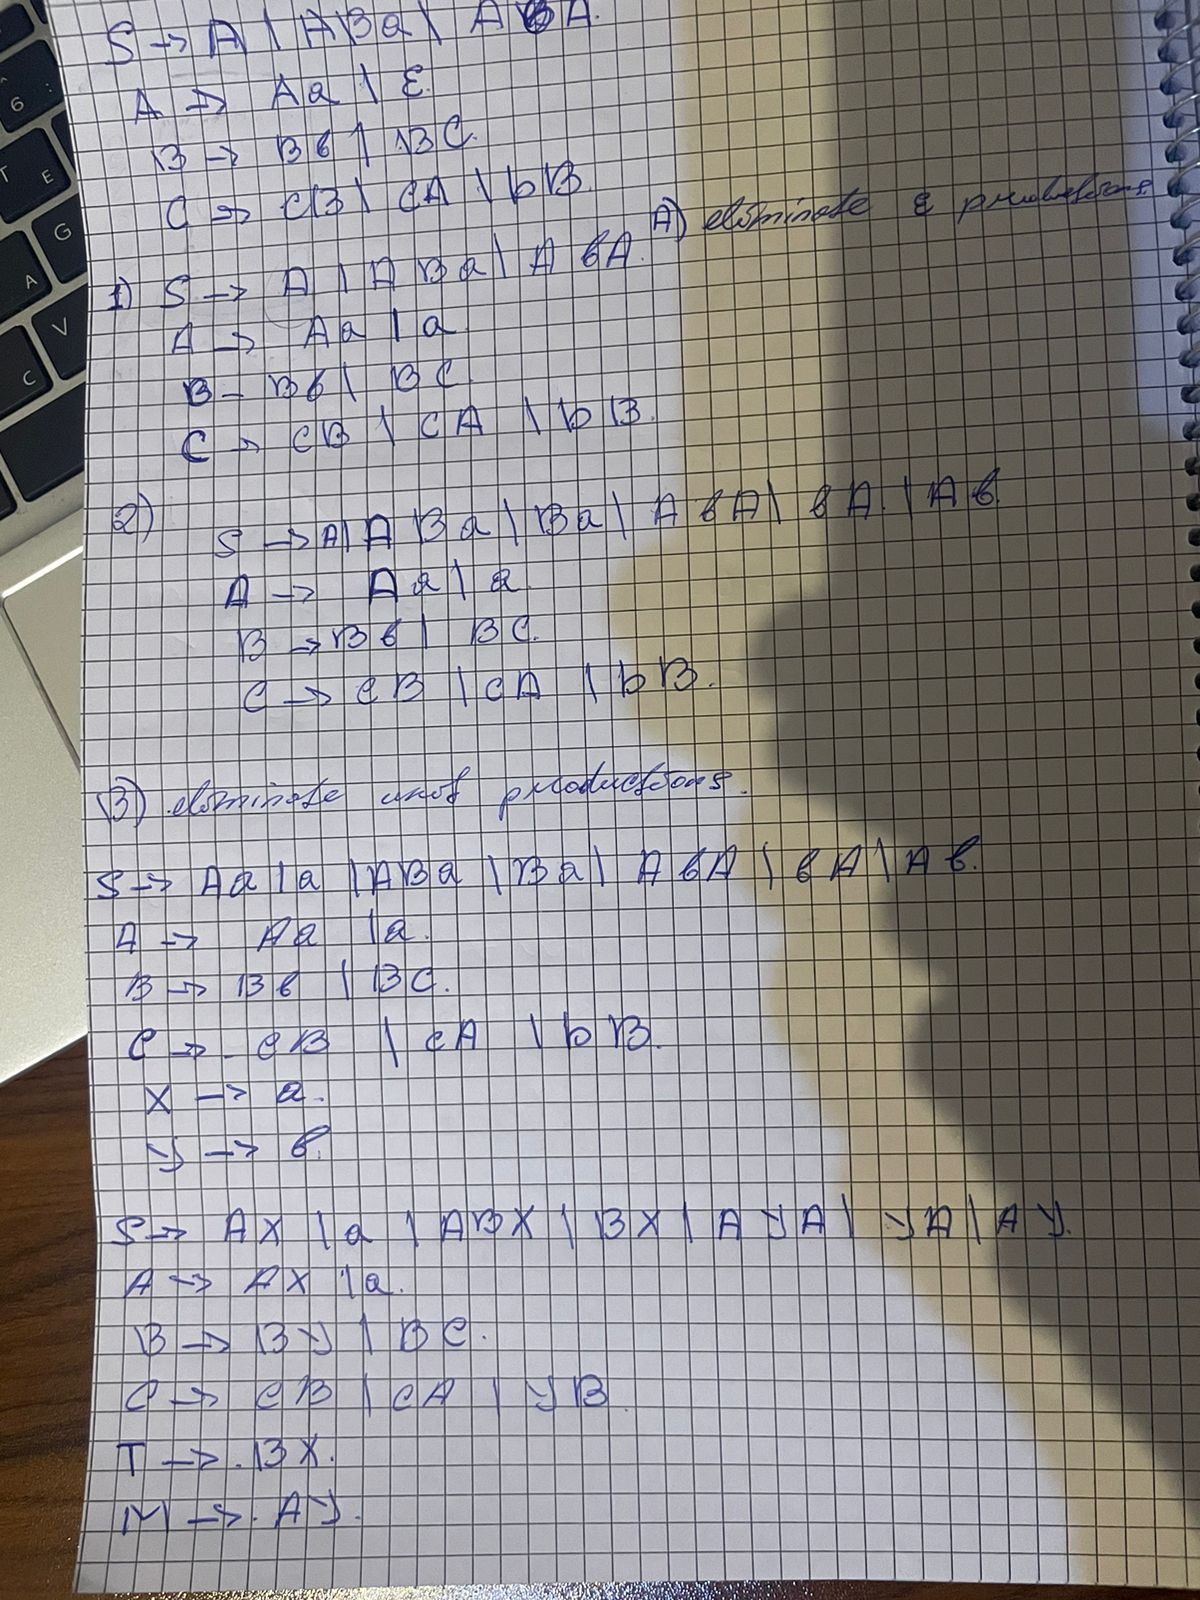 S → A | ABa | AbA.
A → Aa | ε.
B → Bb | BC.
C → CB | CA | bB.
A) eliminate ε productions
1) S → A | ABa | AbA.
A → Aa | a
B – Bb | BC.
C → CB | CA | bB.
2)
S → A | ABa | Ba | AbA | bA. | Ab.
A → Aa | a.
B → Bb | BC.
C → CB | CA | bB.
B) eliminate unit productions.
S → Aa | a | ABa | Ba | AbA | bA | Ab.
A → Aa | a.
B → Bb | BC.
C → CB | CA | bB.
X → a.
Y → b.
S → AX | a | ABX | BX | AYA | YA | AY.
A → AX | a.
B → BY | BC.
C → CB | CA | YB
T → BX.
M → AY.